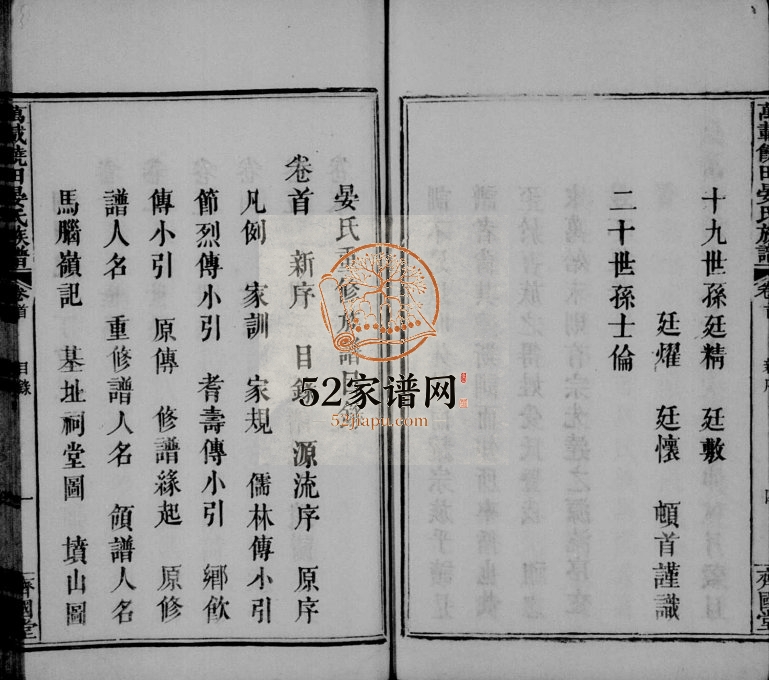 萬載饒田晏氏族譜 卷首 新序 四 齊國堂
十九世孫廷精 廷敷
廷燿 廷懷 頓首謹識
二十世孫士倫
晏氏重修族譜目錄
卷首 新序 目錄 源流序 原序
凡例 家訓 家規 儒林傳小引
節烈傳小引 耆壽傳小引 鄉飲
傳小引 原傳 修譜緣起 原修
譜人名 重修譜人名 領譜人名
馬腦嶺記 基址祠堂圖 墳山圖
萬載饒田晏氏族譜 卷首 目錄 一 齊國堂
52家谱网
52jiapu.com